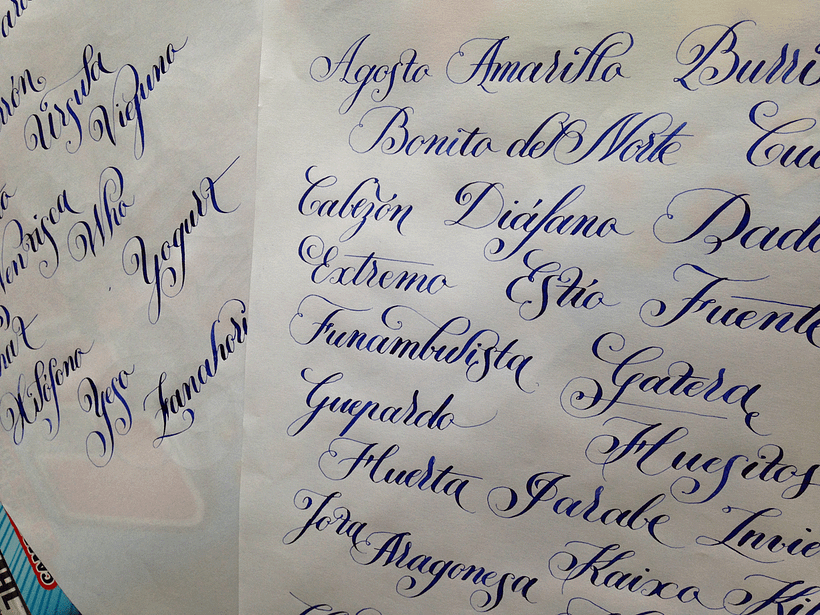 Úrsula Viejuno
Who
Yogurt
Xilófono Yeso Zanahori
Agosto Amarillo Burri
Bonito del Norte Cu
Cabezón Diáfano Dado
Extremo Estío Fuente
Funambulista Gatera
Guepardo Huesitos
Huerta Jarabe Invie
Jota Aragonesa Kaixo Ki